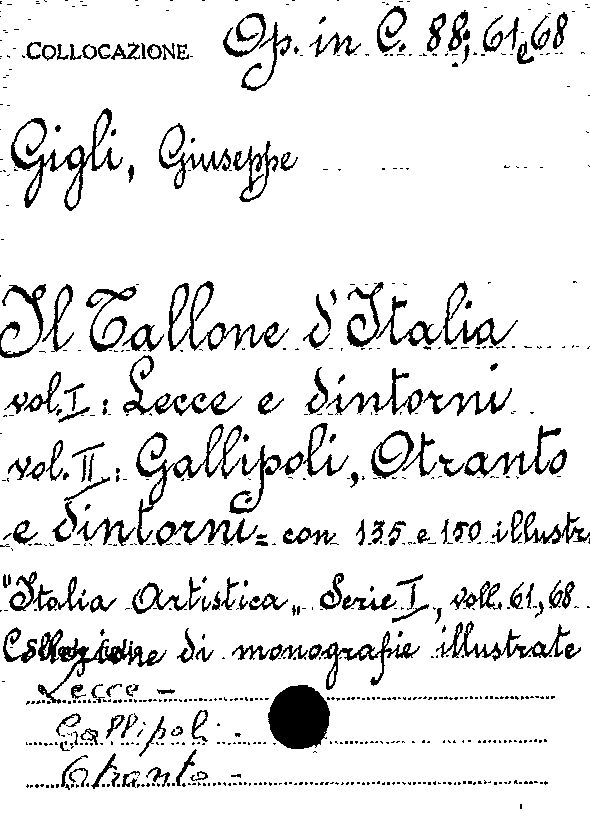 COLLOCAZIONE Op. in C. 88; 61 e 68
Gigli, Giuseppe
Il Tallone d'Italia
vol. I: Lecce e dintorni
vol. II: Gallipoli, Otranto
e dintorni = con 135 e 150 illustr
"Italia Artistica„ Serie I, voll. 61, 68
Collezione di monografie illustrate
Lecce -
Gallipoli -
Otranto -